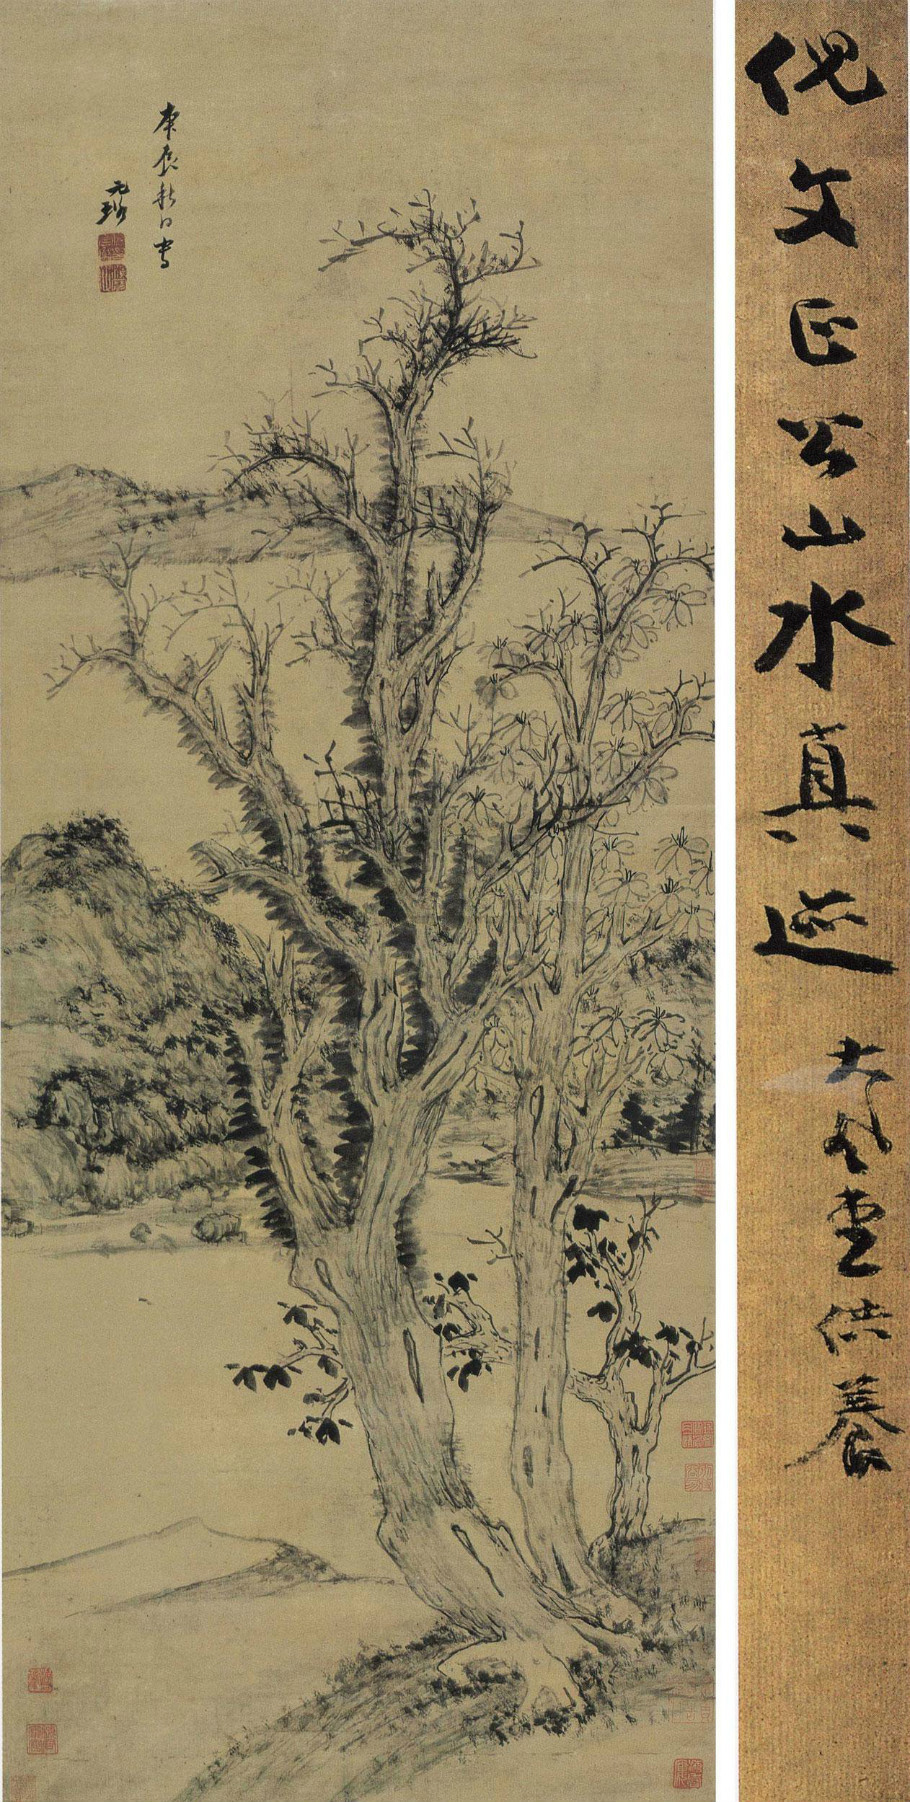 庚辰秋日书
元璐
倪文正公山水真迹
大风堂供养